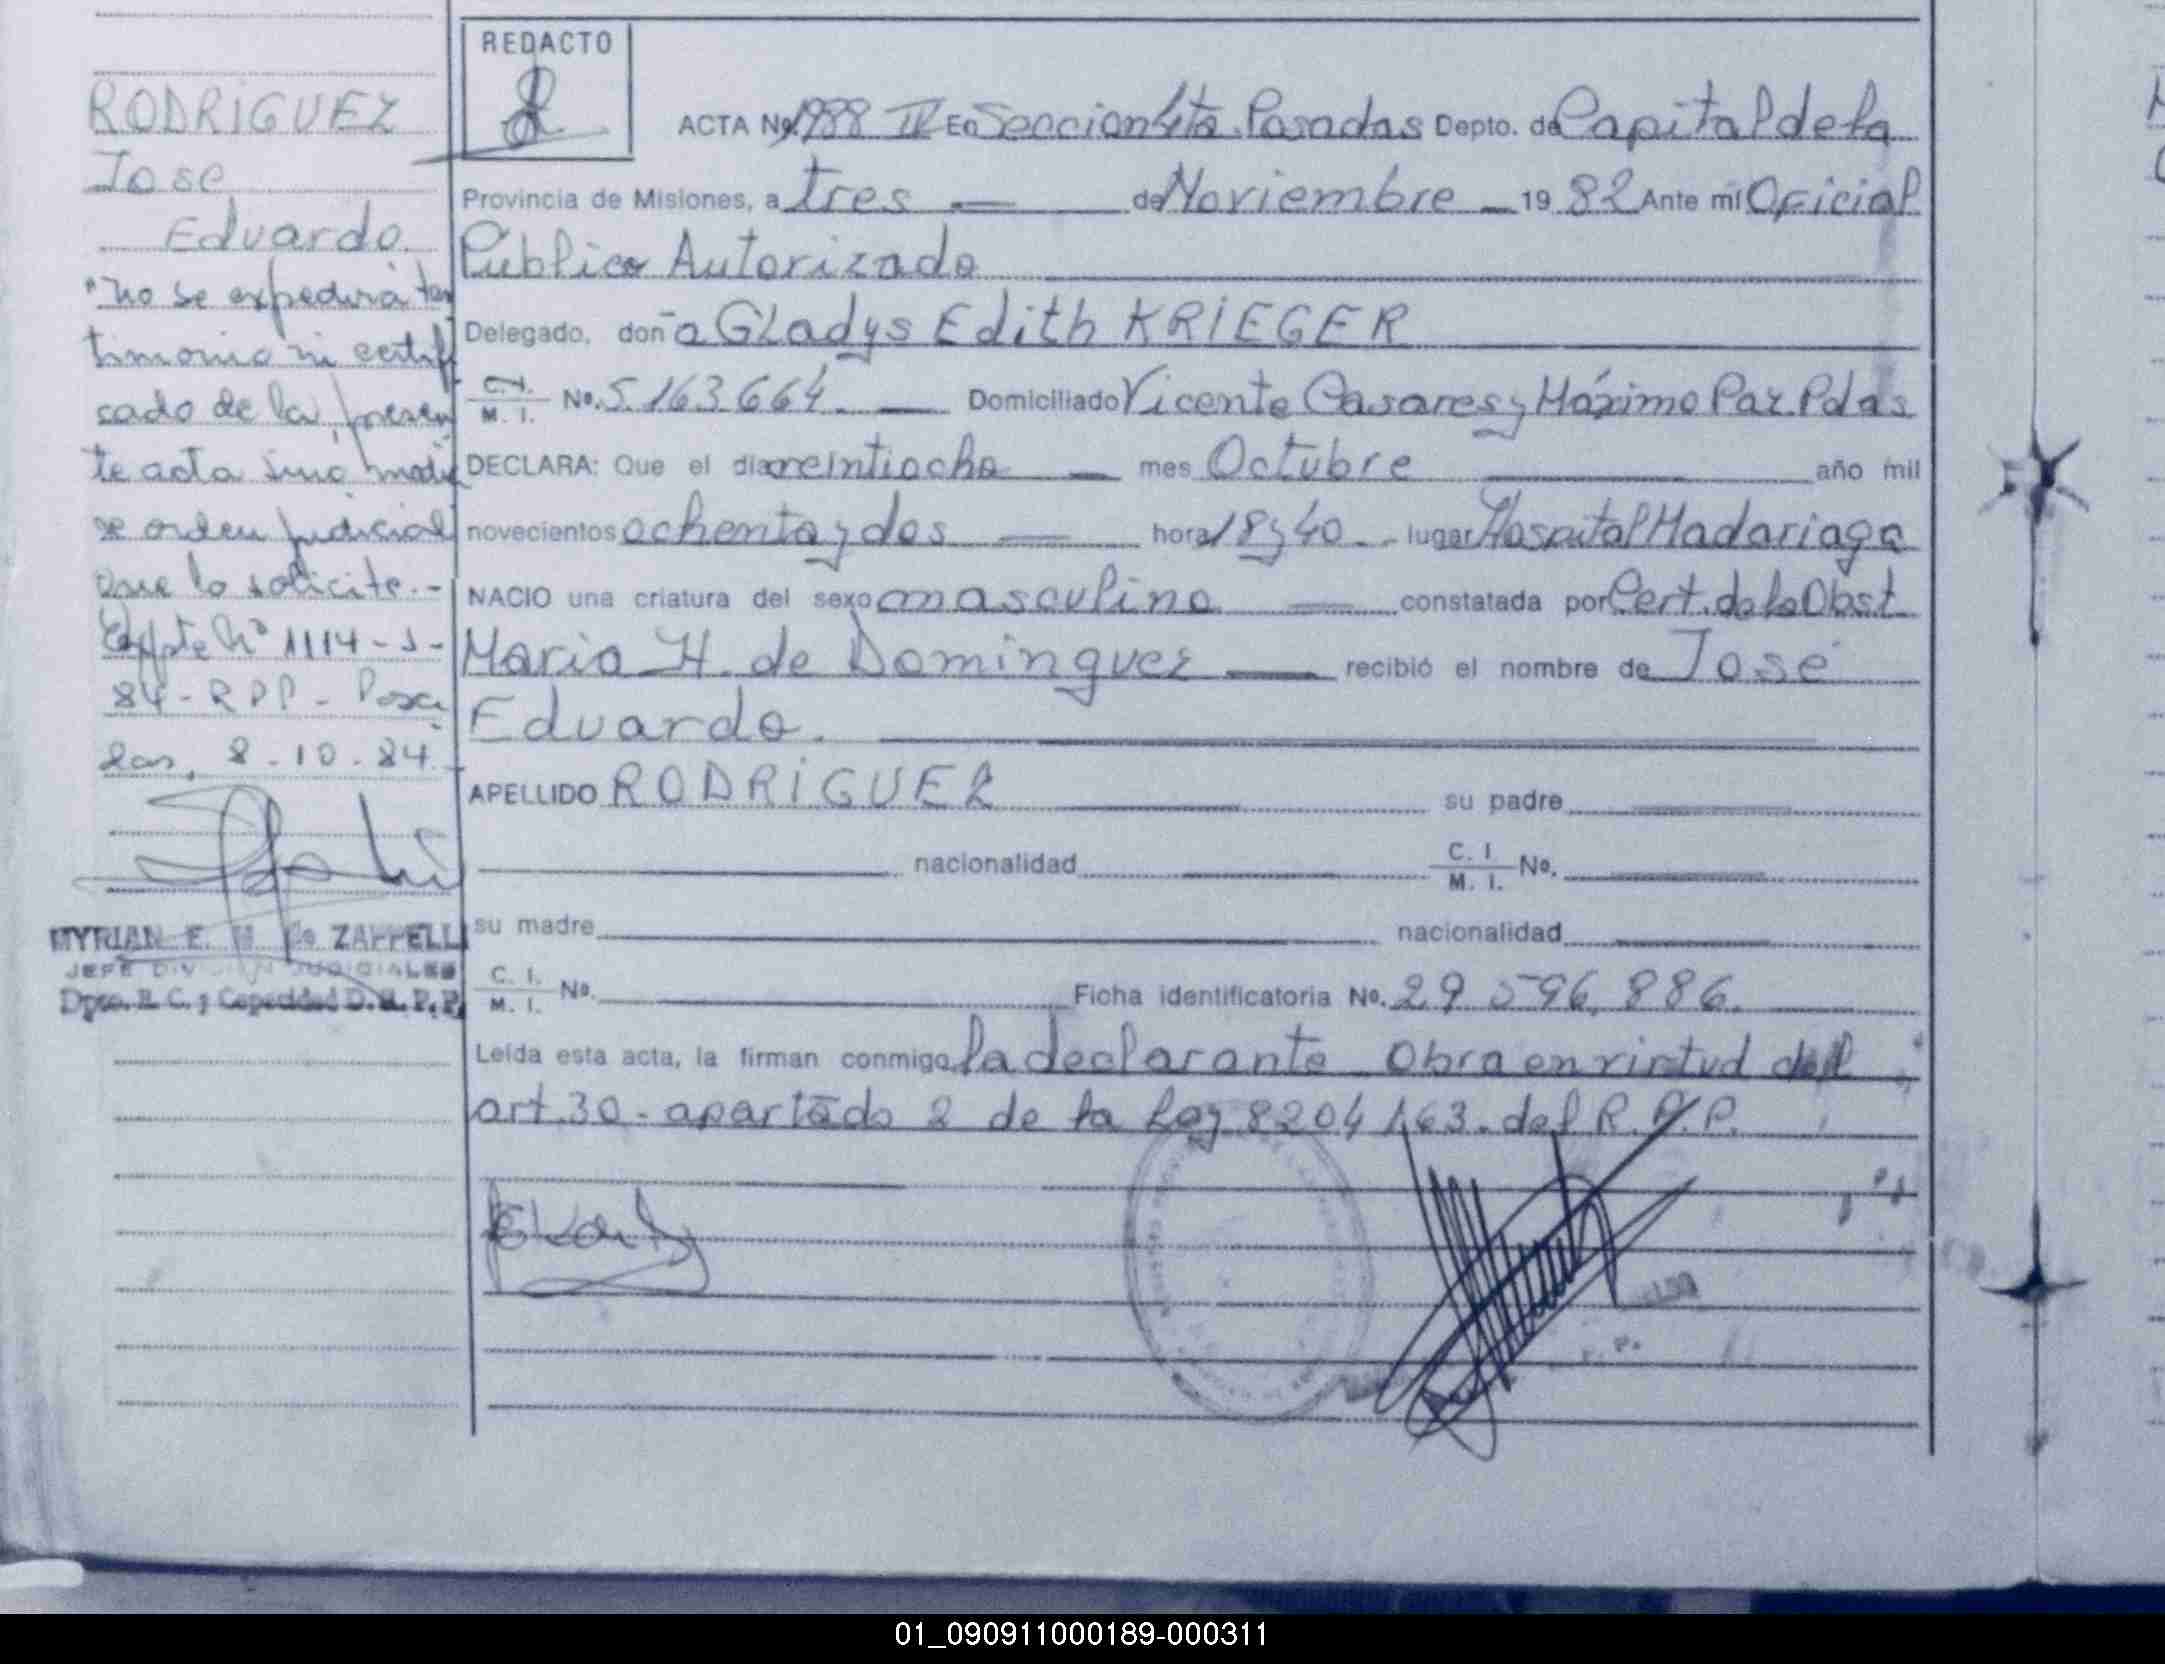 RODRIGUEZ
Jose
Eduardo.
"no se expedirá tes
timonio ni certifi
cado de la presen
te acta sino media
se orden judicial
que lo solicite.-
Expte Nº 1114-S-
84-RPP- Posa
das, 8-10-84.
MYRIAN E. M. de ZAPPELLI
JEFE DIVISION JUDICIALES
Dpto. R. C. y Capacidad D. R. P. P.
REDACTO
ACTA Nº 1988 IV En Seccion 4ta. Posadas Depto. de Capital de la
Provincia de Misiones, a tres de Noviembre 19 82 Ante mí Oficial
Público Autorizado
Delegado, doña Gladys Edith KRIEGER
C. I.
M. I. No. 5.163.664. Domiciliado Vicente Casares y Máximo Paz. Pdas
DECLARA: Que el día veintiocho mes Octubre año mil
novecientos ochenta y dos hora 18 y 40 lugar Hospital Madariaga
NACIO una criatura del sexo masculino constatada por Cert. de la Obst
Maria H. de Dominguez recibió el nombre de José
Eduardo.
APELLIDO RODRIGUEZ su padre
nacionalidad C. I.
M. I. No.
su madre nacionalidad
C. I.
M. I. No. Ficha identificatoria No. 29 596.886.
Leída esta acta, la firman conmigo, la declarante Obra en virtud del
art. 30 - apartado 2 de la Ley 8204/63. del R.P.P.
01_090911000189-000311